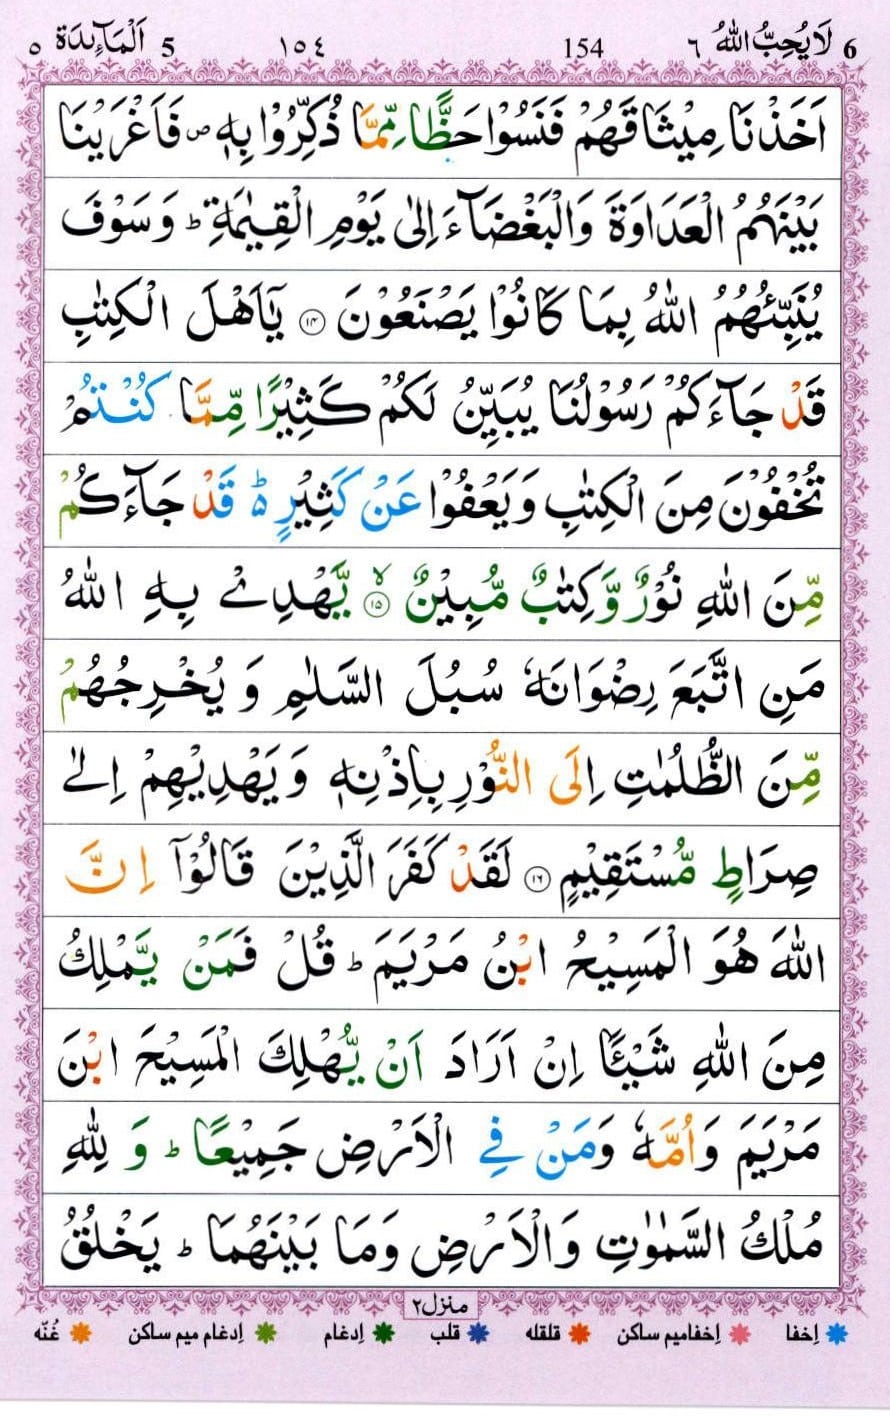 6 لَا یُحِبُّ اللّٰهُ ٦ 154 ١٥٤ 5 اَلْمَآئِدَة ٥
اَخَذْنَا مِیْثَاقَهُمْ فَنَسُوْا حَظًّا مِّمَّا ذُكِّرُوْا بِهٖ ۪ فَاَغْرَیْنَا
بَیْنَهُمُ الْعَدَاوَةَ وَالْبَغْضَآءَ اِلٰی یَوْمِ الْقِیٰمَةِ ؕ وَ سَوْفَ
یُنَبِّئُهُمُ اللّٰهُ بِمَا كَانُوْا یَصْنَعُوْنَ ۝۱۴ یٰۤاَهْلَ الْكِتٰبِ
قَدْ جَآءَكُمْ رَسُوْلُنَا یُبَیِّنُ لَكُمْ كَثِیْرًا مِّمَّا كُنْتُمْ
تُخْفُوْنَ مِنَ الْكِتٰبِ وَیَعْفُوْا عَنْ كَثِیْرٍ ؕ۬ قَدْ جَآءَكُمْ
مِّنَ اللّٰهِ نُوْرٌ وَّكِتٰبٌ مُّبِیْنٌ ۝ۙ۱۵ یَّهْدِیْ بِهِ اللّٰهُ
مَنِ اتَّبَعَ رِضْوَانَهٗ سُبُلَ السَّلٰمِ وَ یُخْرِجُهُمْ
مِّنَ الظُّلُمٰتِ اِلَی النُّوْرِ بِاِذْنِهٖ وَیَهْدِیْهِمْ اِلٰی
صِرَاطٍ مُّسْتَقِیْمٍ ۝۱۶ لَقَدْ كَفَرَ الَّذِیْنَ قَالُوْۤا اِنَّ
اللّٰهَ هُوَ الْمَسِیْحُ ابْنُ مَرْیَمَ ؕ قُلْ فَمَنْ یَّمْلِكُ
مِنَ اللّٰهِ شَیْـًٔا اِنْ اَرَادَ اَنْ یُّهْلِكَ الْمَسِیْحَ ابْنَ
مَرْیَمَ وَاُمَّهٗ وَمَنْ فِی الْاَرْضِ جَمِیْعًا ؕ وَ لِلّٰهِ
مُلْكُ السَّمٰوٰتِ وَالْاَرْضِ وَمَا بَیْنَهُمَا ؕ یَخْلُقُ
منزل ٢
اِخفا اِخفامیم ساکن قلقله قلب اِدغام اِدغام میم ساکن غُنّه